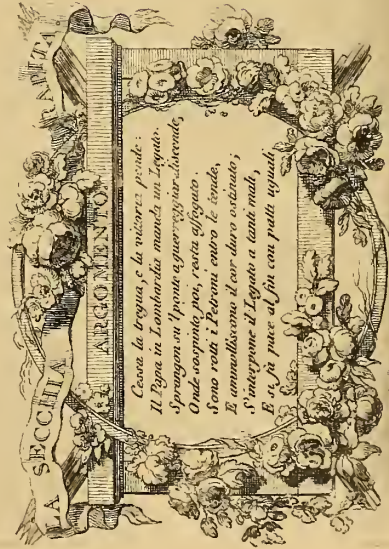 LA SECCHIA RAPITA
ARGOMENTO
Cessa la tregua, e la vittoria pende:
Il Papa in Lombardia manda un Legato.
Sprangon su'l ponte a guerreggiar discende,
Onde sospinto poi, resta affogato.
Sono rotti i Petroni entro le tende,
E ammolliscono il cor duro ostinato;
S'interpone il Legato a tanti mali,
E si fà pace al fin con patti uguali.